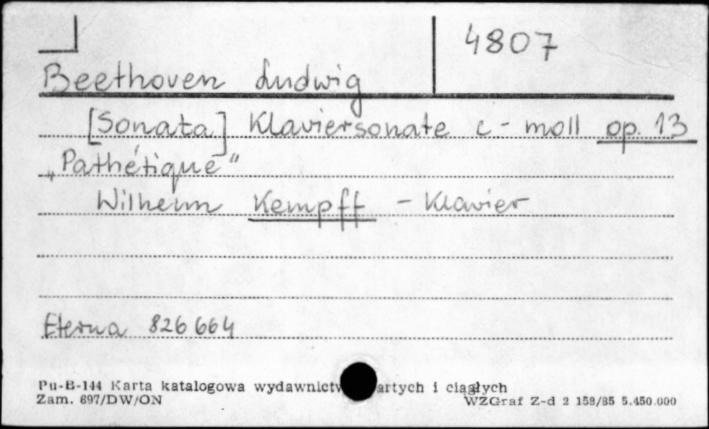 4807
Beethoven Ludwig
[Sonata] Klaviersonate c-moll op. 13
„Pathétique"
Wilhelm Kempff - Klavier
Eterna 826 664
Pu-B-144 Karta katalogowa wydawnictw artych i ciągłych
Zam. 697/DW/ON WZGraf Z-d 2 159/85 5.450.000